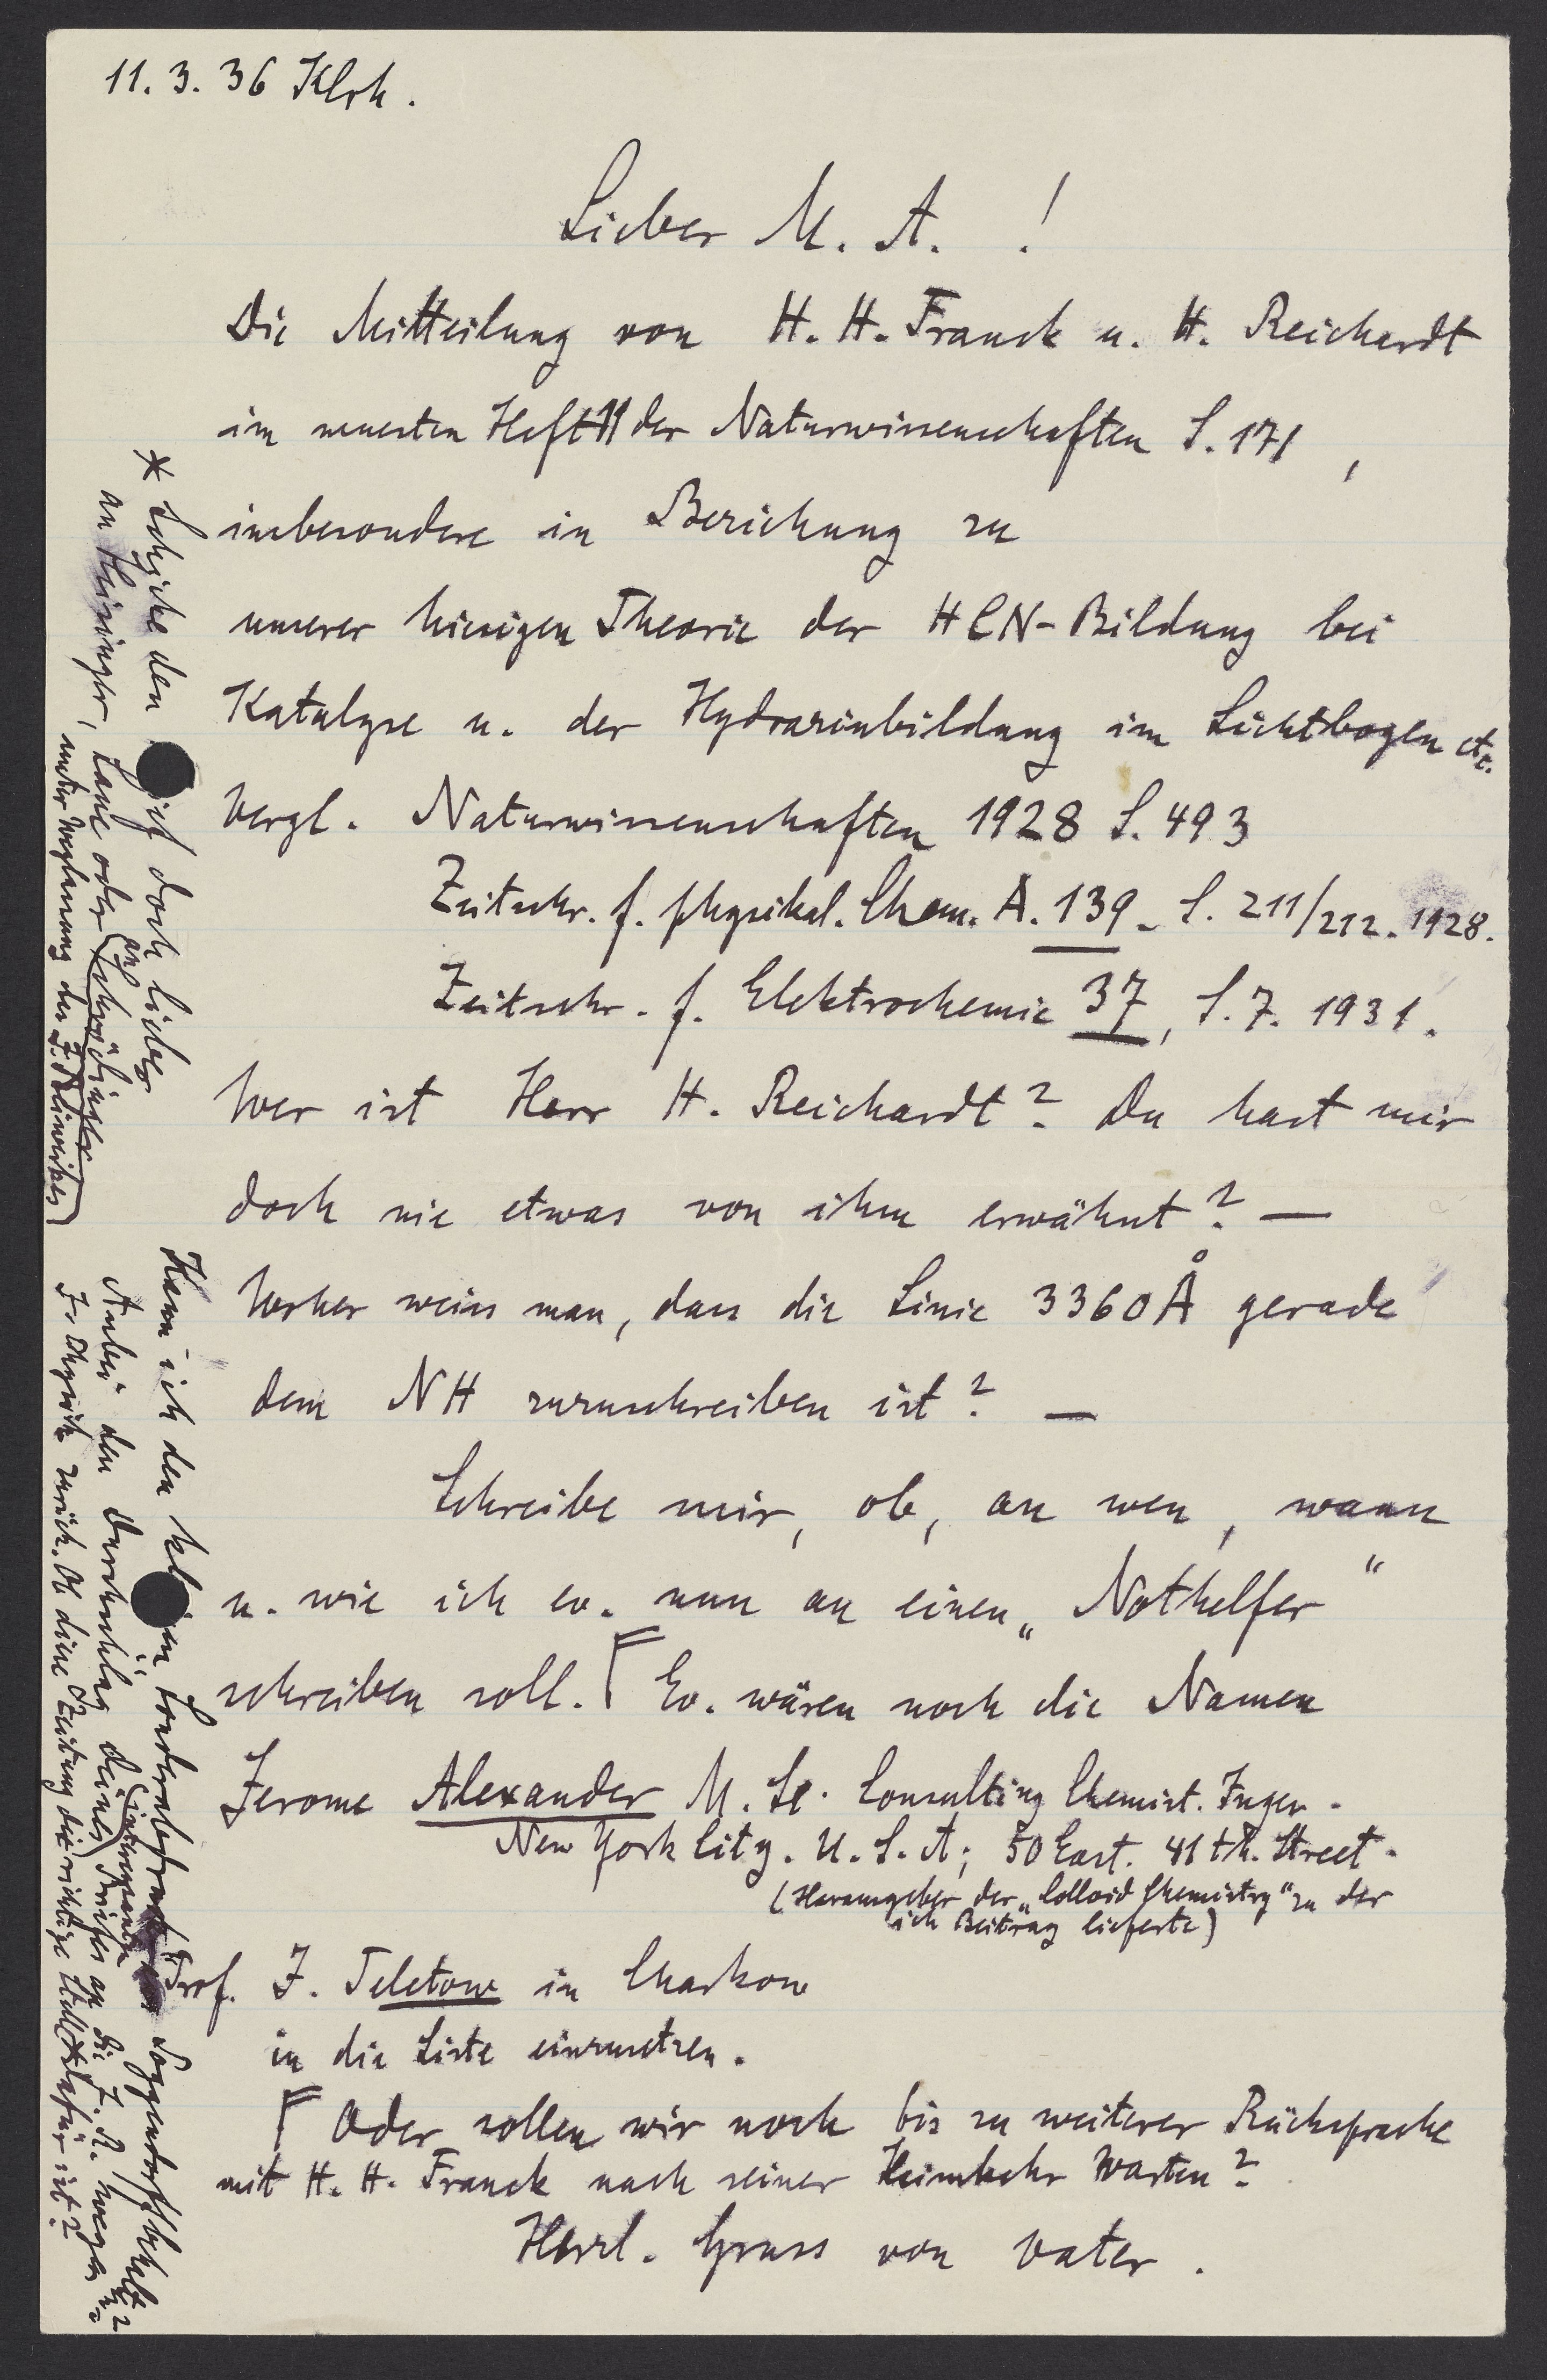 11. 3. 36 Klrh.
Lieber M. A. !
Die Mitteilung von H. H. Franck u. H. Reichardt
im neuesten Heft 11 der Naturwissenschaften S. 171,
insbesondere in Beziehung zu
unserer hiesigen Theorie der HCN-Bildung bei
Katalyse u. der Hydrazinbildung im Lichtbogen etc.
Vergl. Naturwissenschaften 1928 S. 493
Zeitschr. f. physikal. Chem. A. 139. S. 211/212. 1928.
Zeitschr. f. Elektrochemie 37, S. 7. 1931.
Wer ist Herr H. Reichardt? Du hast mir
doch nie etwas von ihm erwähnt? —
Woher weiss man, dass die Linie 3360 Å gerade
dem NH zuzuschreiben ist? —
Schreibe mir, ob, an wen, wann
u. wie ich ev. nun an einen „Nothelfer“
schreiben soll. Ev. wären noch die Namen
Jerome Alexander M. Sc. Consulting Chemist. Ingen.
New York City. U. S. A; 50 East. 41 th. Street.
(Herausgeber der „Colloid Chemistry“ zu der
ich Beitrag lieferte)
Prof. J. Teletow in Charkow
in die Liste einzusetzen.
Oder sollen wir noch bis zu weiterer Rücksprache
mit H. H. Franck nach seiner Heimkehr warten?
Herzl. Gruss von Vater.
* Schicke den doch lieber
an Heisinger, Laue oder an Schrödinger
unter Weglassung des
Kann ich den Sonderabdruck Poggendorff behalten?
Anbei den Durchschlag deines (interessanten) Briefes an die J. R. wegen
Z. Physik zurück. Ob diese Zeitung die richtige Stelle dafür ist?